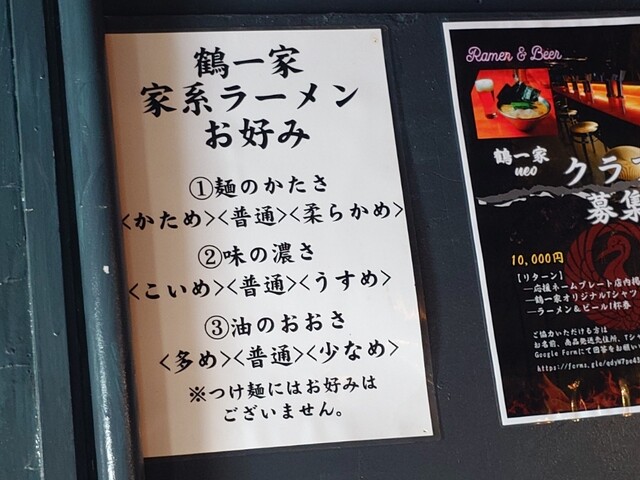 鶴一家
家系ラーメン
お好み
①麺のかたさ
<かため><普通><柔らかめ>
②味の濃さ
<こいめ><普通><うすめ>
③油のおおさ
<多め><普通><少なめ>
※つけ麺にはお好みは
ございません。
Ramen & Beer
鶴一家
neo
クラ
募集
10,000円
【リターン】
―応援ネームプレート店内掲
―鶴一家オリジナルTシャツ
―ラーメン&ビール1杯券
ご協力いただける方は
お名前、商品発送先住所、Tシャ
Google Formにて回答をお願い
https://forms.gle/